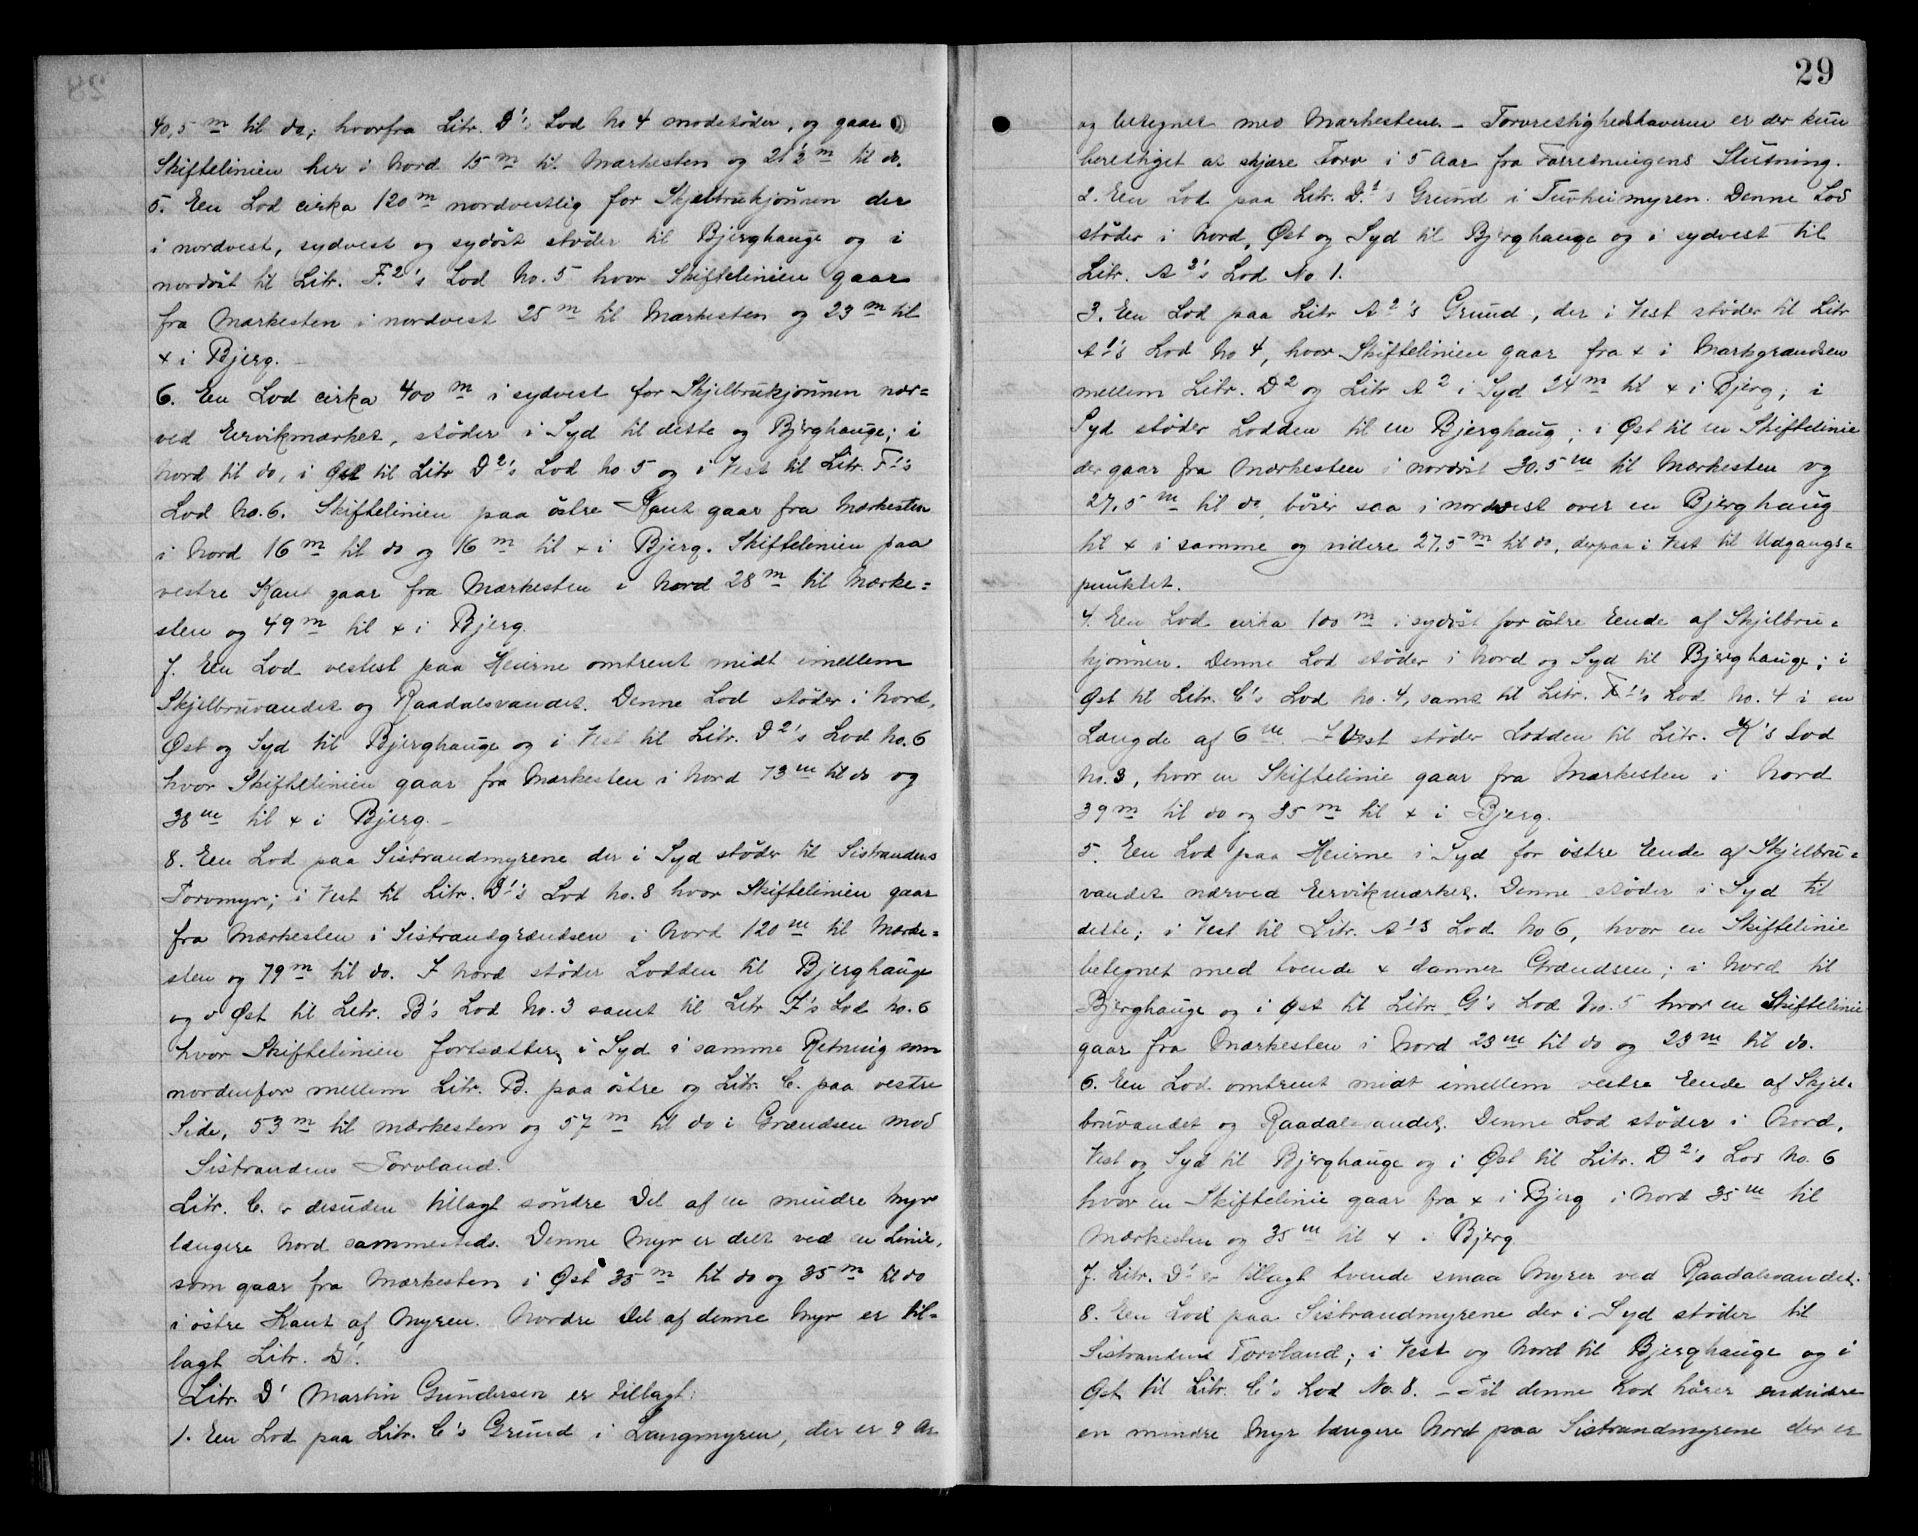 40,5 m til do; hvorfra Litr. D1's Lod No 4 modstöder, og gaar
Skiftelinien her i Nord 15 m til Mærkesten og 21 2 m til do.
5. Een Lod cirka 120 m nordvestlig for Skjelbrukjönnen der
i nordvest, sydvest og sydöst stöder til Bjerghauge og i
nordöst til Litr. F.2's Lod No. 5 hvor Skiftelinien gaar
fra Mærkesten i nordvest 25 m til Mærkesten og 23 m til
x i Bjerg. –
6. Een Lod cirka 400 m i sydvest for Skjelbrukjönnen nær=
ved Eervikmærket, stöder i Syd til dette og Bjerghauge; i
Nord til do, i Øst til Litr D2's Lod No 5 og i Vest til Litr. F1's
Lod No. 6. Skiftelinien paa östre Kant gaar fra Mærkesten
i Nord 16 m til do og 16 m til x i Bjerg. Skiftelinien paa
vestre Kant gaar fra Mærkesten i Nord 28 m til Mærke=
sten og 49 m til x i Bjerg.
7. Een Lod vestest paa Heierne omtrent midt imellem
Skjelbruvandet og Raadalsvandet. Denne Lod stöder i Nord,
Øst og Syd til Bjerghauge og i Vest til Litr. D2's Lod No. 6
hvor Skiftelinien gaar fra Mærkesten i Nord 73 m til do og
38 m til x i Bjerg. –
8. Een Lod paa Sistrandmyrene der i Syd stöder til Sistrandens
Torvmyr; i Vest til Litr. D1's Lod No. 8 hvor Skiftelinien gaar
fra Mærkesten i Sistrandgrændsen i Nord 120 m til Mærke=
sten og 79 m til do. I Nord stöder Lodden til Bjerghauge
og i Øst til Litr. B's Lod No. 3 samt til Litr F's Lod No. 6
hvor Skiftelinien fortsætter i Syd i samme Retning som
nordenfor mellem Litr. B. paa östre og Litr. C. paa vestre
Side, 53 m til mærkesten og 57 m til do i Grændsen mod
Sistrandens Torvland.
Litr. C. er desuden tillagt söndre Del af en mindre Myr
længere Nord sammesteds. Denne Myr er delt ved en Linie,
som gaar fra Mærkesten i Øst 35 m til do og 35 m til do
i östre Kant af Myren. Nordre Del af denne Myr er til=
lagt Litr. D1.
Litr. D1 Martin Gundersen er tillagt:
1. Een Lod paa Litr. C's Grund i Langmyren, der er 9 Ar
29
og betegnet med Markestene. – Torvrettighedshaveren er der kun
berettiget at skjære Torv i 5 Aar fra Forretningens Slutning.
2. Een Lod paa Litr. D.2's Grund i Tuvheimyren. Denne Lod
stöder i Nord, Øst og Syd til Bjerghauge og i sydvest til
Litr. A2's Lod No 1.
3. Een Lod paa Litr A2's Grund, der i Vest stöder til Litr
A1's Lod No 4, hvor Skiftelinien gaar fra x i Markgrændsen
mellem Litr. D2 og Litr A2 i Syd 24 m til x i Bjerg; i
Syd stöder Lodden til en Bjerghaug; i Øst til en Skiftelinie
der gaar fra Mærkesten i nordöst 30.5 m til Mærkesten og
27,5 m til do, böier saa i nordvest over en Bjerghaug
til x i samme og videre 27,5 m til do, derpaa i Vest til Udgangs=
punktet.
4. Een Lod cirka 100 m i sydöst for östre Eende af Skjelbru=
kjönnen. Denne Lod stöder i Nord og Syd til Bjerghauge; i
Øst til Litr. C's Lod No. 4, samt til Litr. F1's Lod No. 4 i en
Længde af 6 m. I Vest stöder Lodden til Litr. H's Lod
No. 3, hvor en Skiftelinie gaar fra Mærkesten i Nord
39 m til do og 35 m til x i Bjerg.
5. Een Lod paa Heierne i Syd for östre Eende af Skjelbru=
vandet nærved Eervikmærket. Denne stöder i Syd til
dette; i Vest til Litr. A1's Lod No 6, hvor en Skiftelinie
betegnet med tvende x danner Grændsen; i Nord til
Bjerghauge og i Øst til Litr. G's Lod No. 5 hvor en Skiftelinie
gaar fra Mærkesten i Nord 23 m til do og 23 m til do.
6. Een Lod omtrent midt imellem vestre Eende af Skjel=
bruvandet og Raadalsvandet. Denne Lod stöder i Nord,
Vest og Syd til Bjerghauge og i Øst til Litr. D2's Lod No. 6
hvor en Skiftelinie gaar fra x i Bjerg i Nord 35 m til
Mærkesten og 35 m til x i Bjerg
7. Litr. D1 er tillagt tvende smaa Myrer ved Raadalsvandet.
8. Een Lod paa Sistrandmyrene der i Syd stöder til
Sistrandens Torvland; i Vest og Nord til Bjerghauge og i
Øst til Litr. C's Lod No. 8. – Til denne Lod hörer endvidere
en mindre Myr længere Nord paa Sistrandmyrene der er